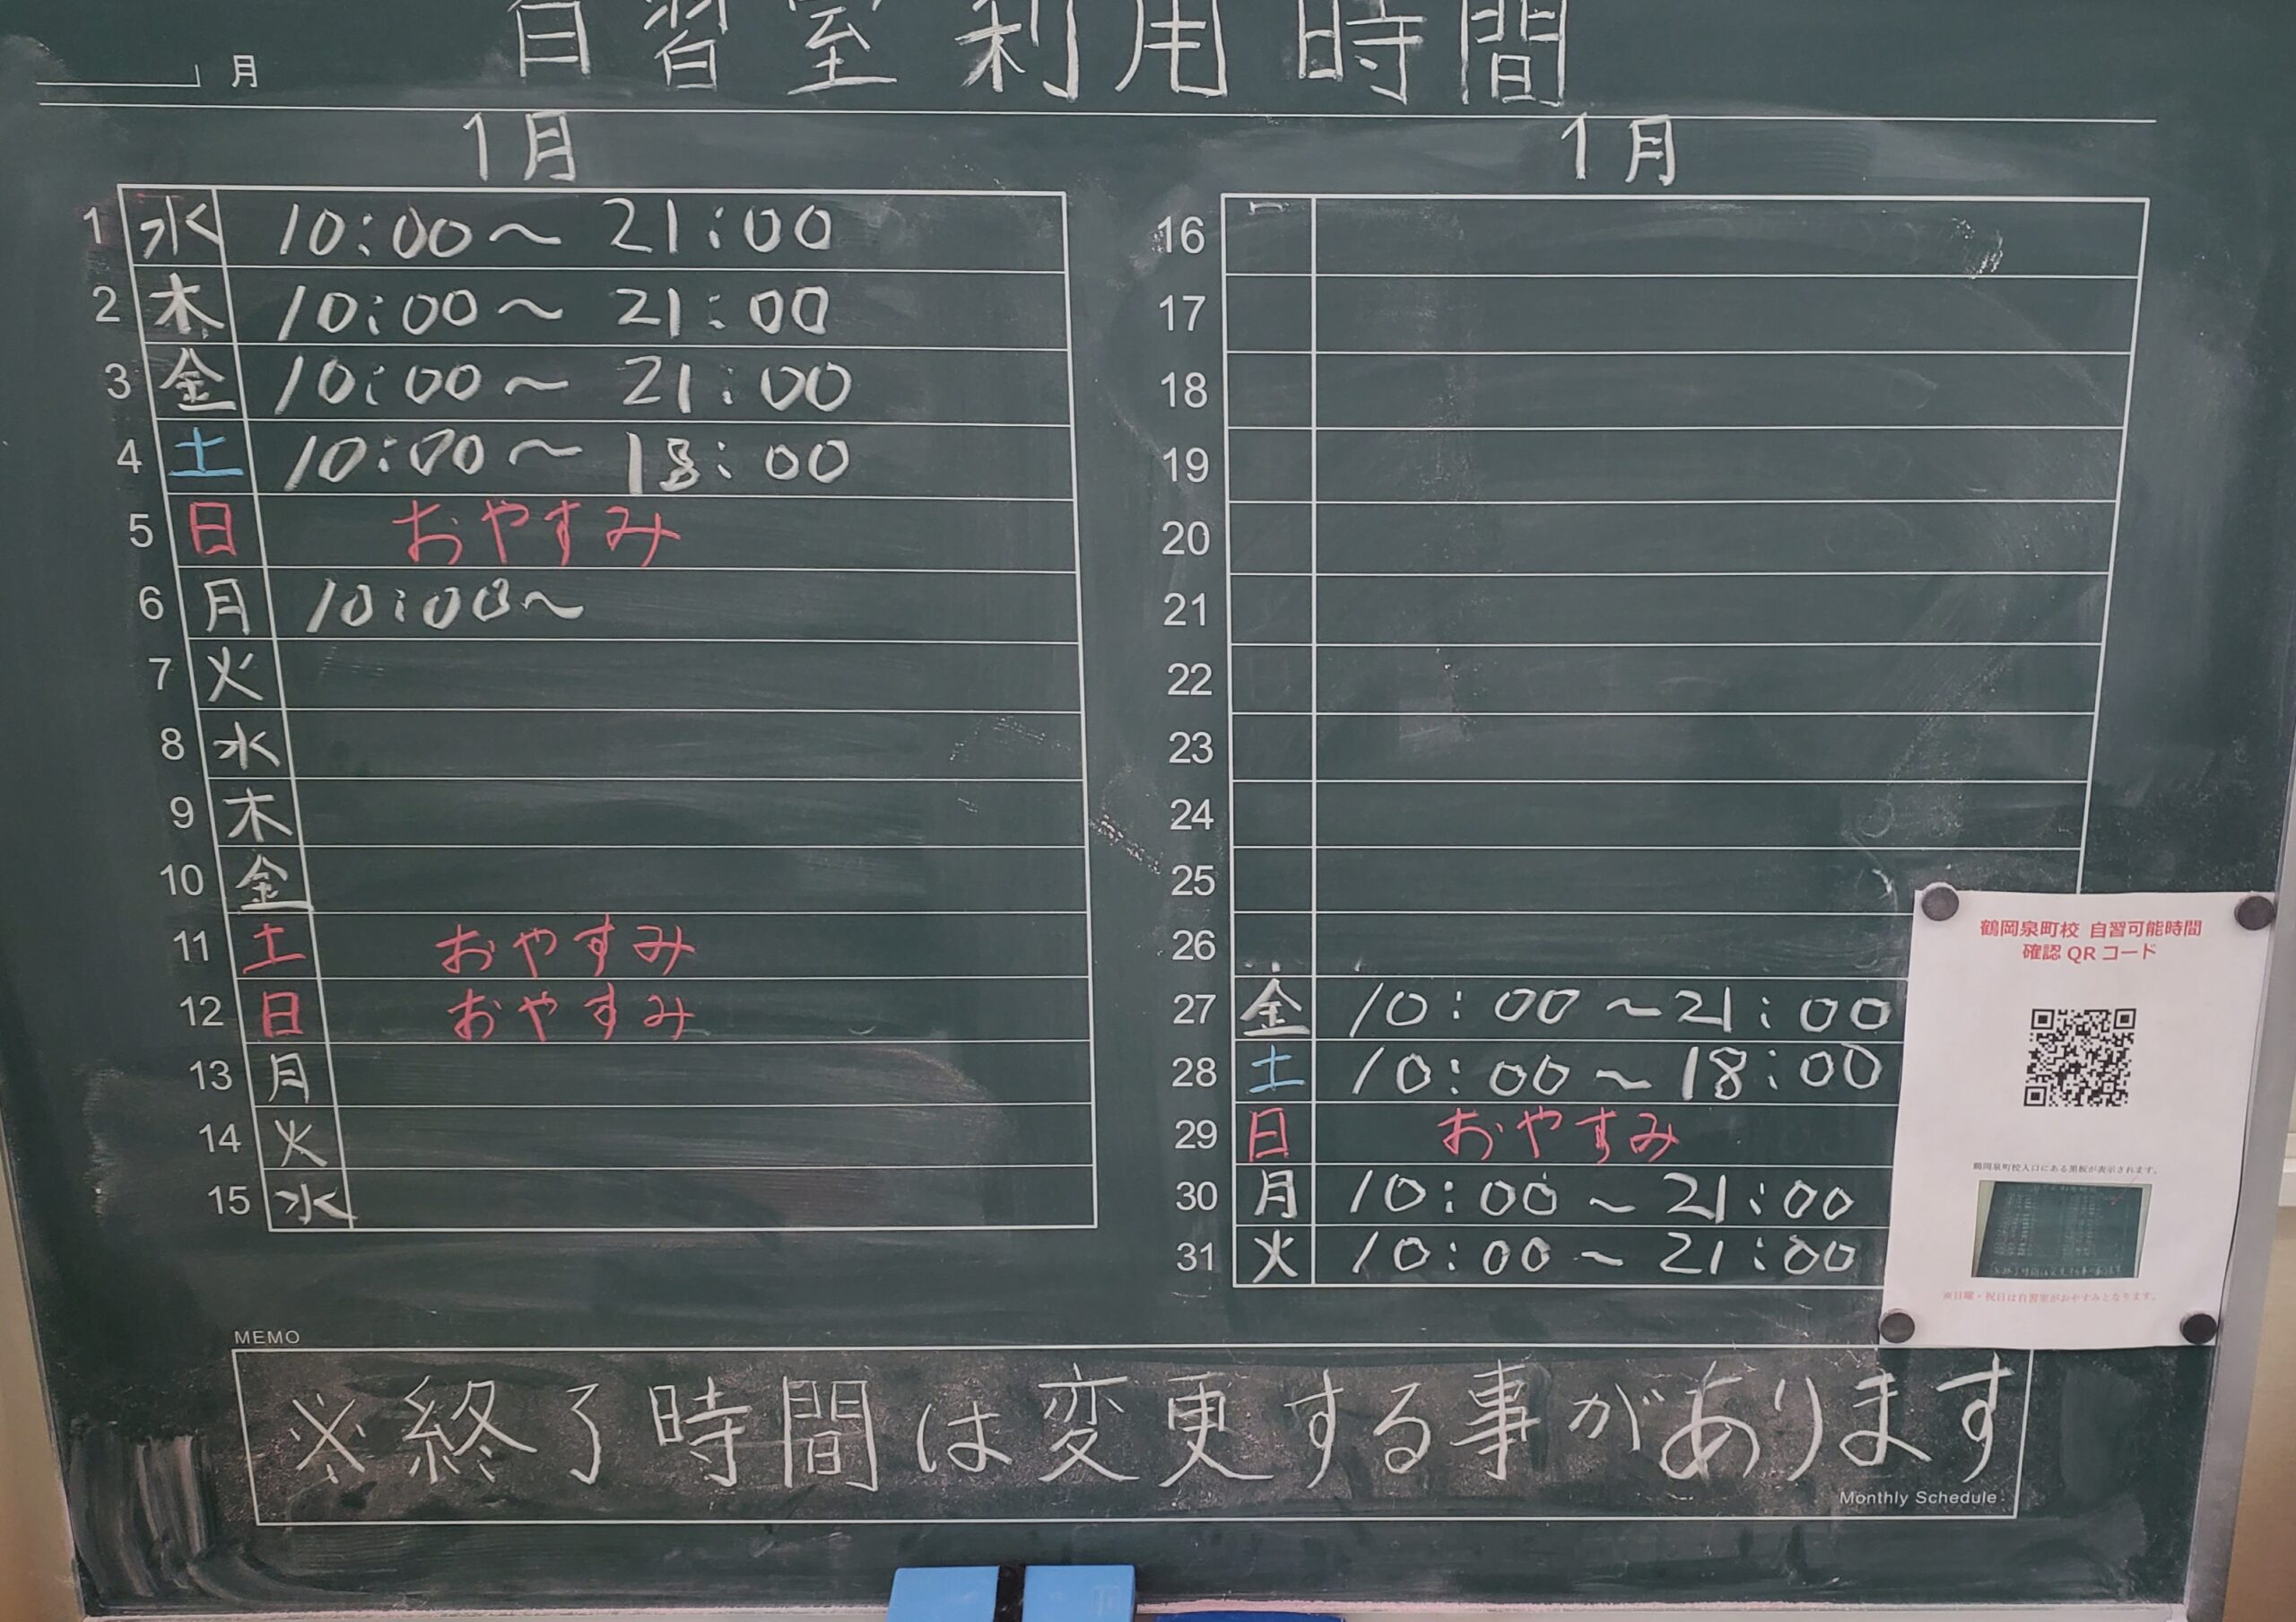 自習室利用時間
月
1月
1 水 10:00～21:00
2 木 10:00～21:00
3 金 10:00～21:00
4 土 10:00～18:00
5 日 おやすみ
6 月 10:00～
7 火
8 水
9 木
10 金
11 土 おやすみ
12 日 おやすみ
13 月
14 火
15 水
1月
16
17
18
19
20
21
22
23
24
25
26
27 金 10:00～21:00
28 土 10:00～18:00
29 日 おやすみ
30 月 10:00～21:00
31 火 10:00～21:00
鶴岡泉町校 自習可能時間
確認QRコード
鶴岡泉町校入口にある黒板が表示されます。
※日曜・祝日は自習室がおやすみとなります。
MEMO
※終了時間は変更する事があります
Monthly Schedule